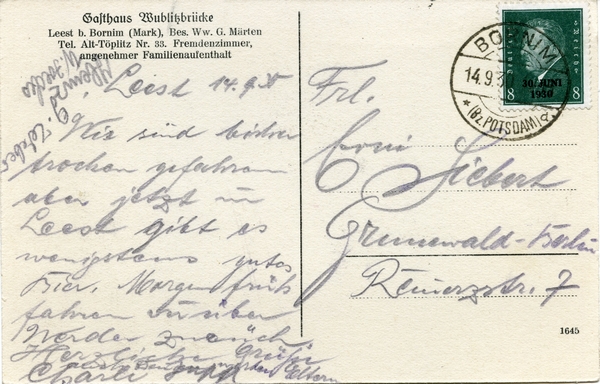 Gasthaus Wublitzbrücke
Leest b. Bornim (Mark), Bes. Ww. G. Märten
Tel. Alt-Töplitz Nr. 33. Fremdenzimmer,
angenehmer Familienaufenthalt
Leest 14.9.30
Wir sind bisher
trocken gefahren
aber jetzt in
Leest gibt es
wenigstens gutes
Bier. Morgen früh
fahren wir über
Werder zurück
Herzliche Grüße
Charli
Eltern
Frl.
Erni Siebert
Grunewald-Berlin
Reinerzstr. 7
BORNIM
14.9.30
(Bz. POTSDAM)
Deutsches Reich
30. JUNI
1930
8 8
1645